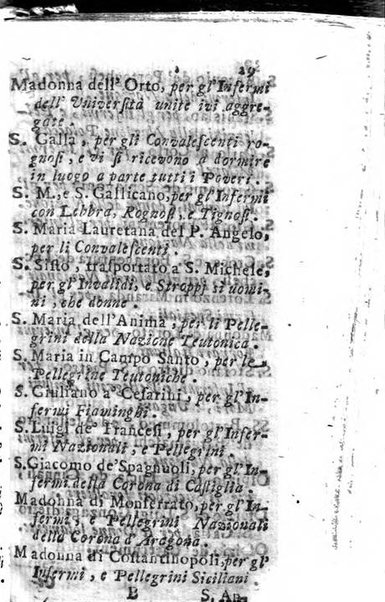 29
Madonna dell' Orto, per gl'Infermi
dell' Università unite ivi aggre-
gate.
S. Galla, per gli Convalescenti ro-
gnosi, e vi si ricevono a dormire
in luogo a parte tutti i Poveri.
S. M., e S. Gallicano, per gl'Infermi
con Lebbra, Rognosi, e Tignosi.
S. Maria Lauretana del P. Angelo,
per li Convalescenti.
S. Sisto, trasportato a S. Michele,
per gl'Invalidi, e Stroppj sì uomi-
ni, che donne.
S. Maria dell'Anima, per li Pelle-
grini della Nazione Teutonica.
S. Maria in Campo Santo, per le
Pellegrine Teutoniche.
S. Giuliano a Cesarini, per gl'In-
fermi Fiaminghi.
S. Luigi de' Francesi, per gl'Infer-
mi Nazionali, e Pellegrini.
S. Giacomo de' Spagnuoli, per gl'In-
fermi della Corona di Castiglia.
Madonna di Monserrato, per gl'In-
fermi, e Pellegrini Nazionali
della Corona d'Aragona.
Madonna di Costantinopoli, per gl'
Infermi, e Pellegrini Siciliani.
B S. An-